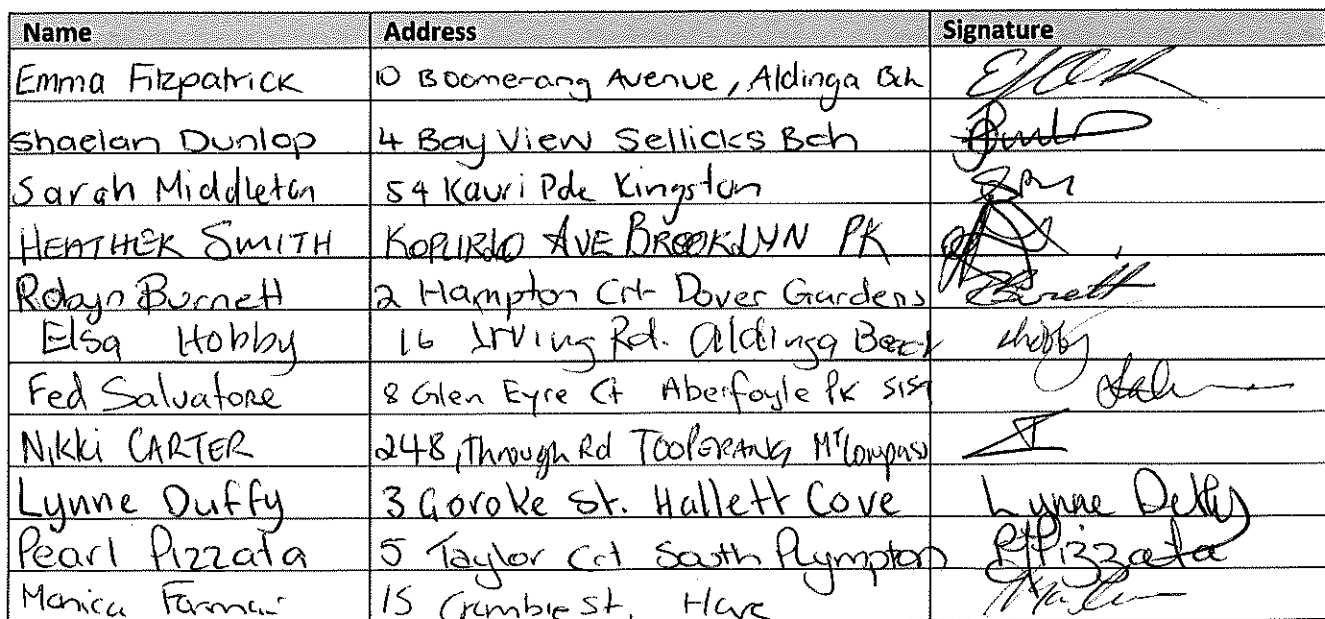 Name Address Signature
Emma Fitzpatrick 10 Boomerang Avenue, Aldinga Bch
Shaelan Dunlop 4 Bay View Sellicks Bch
Sarah Middleton 54 Kauri Pde Kingston
HEATHER SMITH AVE BROOKLYN PK
Robyn Burnett 2 Hampton Crt Dover Gardens Burnett
Elsa Hobby 16 Irving Rd. Aldinga Beach
Fed Salvatore 8 Glen Eyre Ct Aberfoyle Pk 5159
Nikki CARTER 248, Through Rd TOOPERANG Mt Compass
Lynne Duffy 3 Goroke St. Hallett Cove Lynne Duffy
Pearl Pizzata 5 Taylor Crt South Plympton P Pizzata
Monica 15 St,